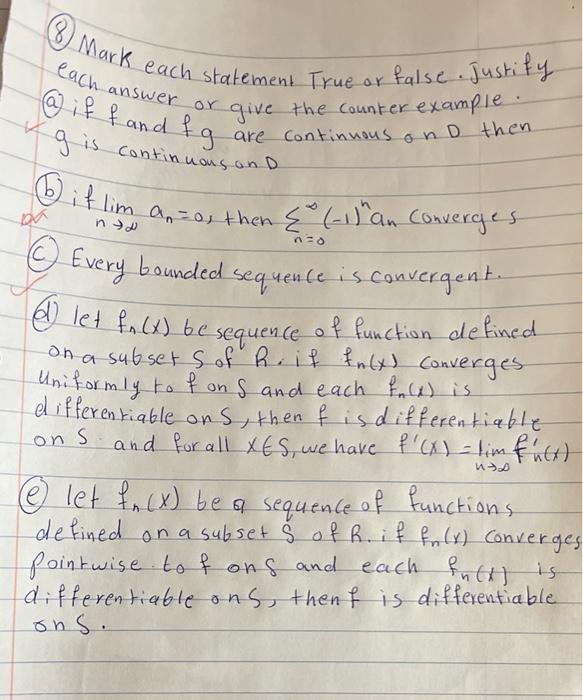 ⑧ Mark each statement True or false. Justify
each answer or give the counter example.
ⓐ if f and fg are continuous on D then
g is continuous on D
ⓑ if lim n→∞ an=0, then ∑ n=0 ∞ (-1)^n an converges
ⓒ Every bounded sequence is convergent.
ⓓ let fn(x) be sequence of function defined
on a subset S of R. if fn(x) converges
Uniformly to f on S and each fn(x) is
differentiable on S, then f is differentiable
on S and for all x∈S, we have f'(x) = lim n→∞ f'n(x)
ⓔ let fn(x) be a sequence of functions
defined on a subset S of R. if fn(x) converges
pointwise to f on S and each fn(x) is
differentiable on S, then f is differentiable
on S.